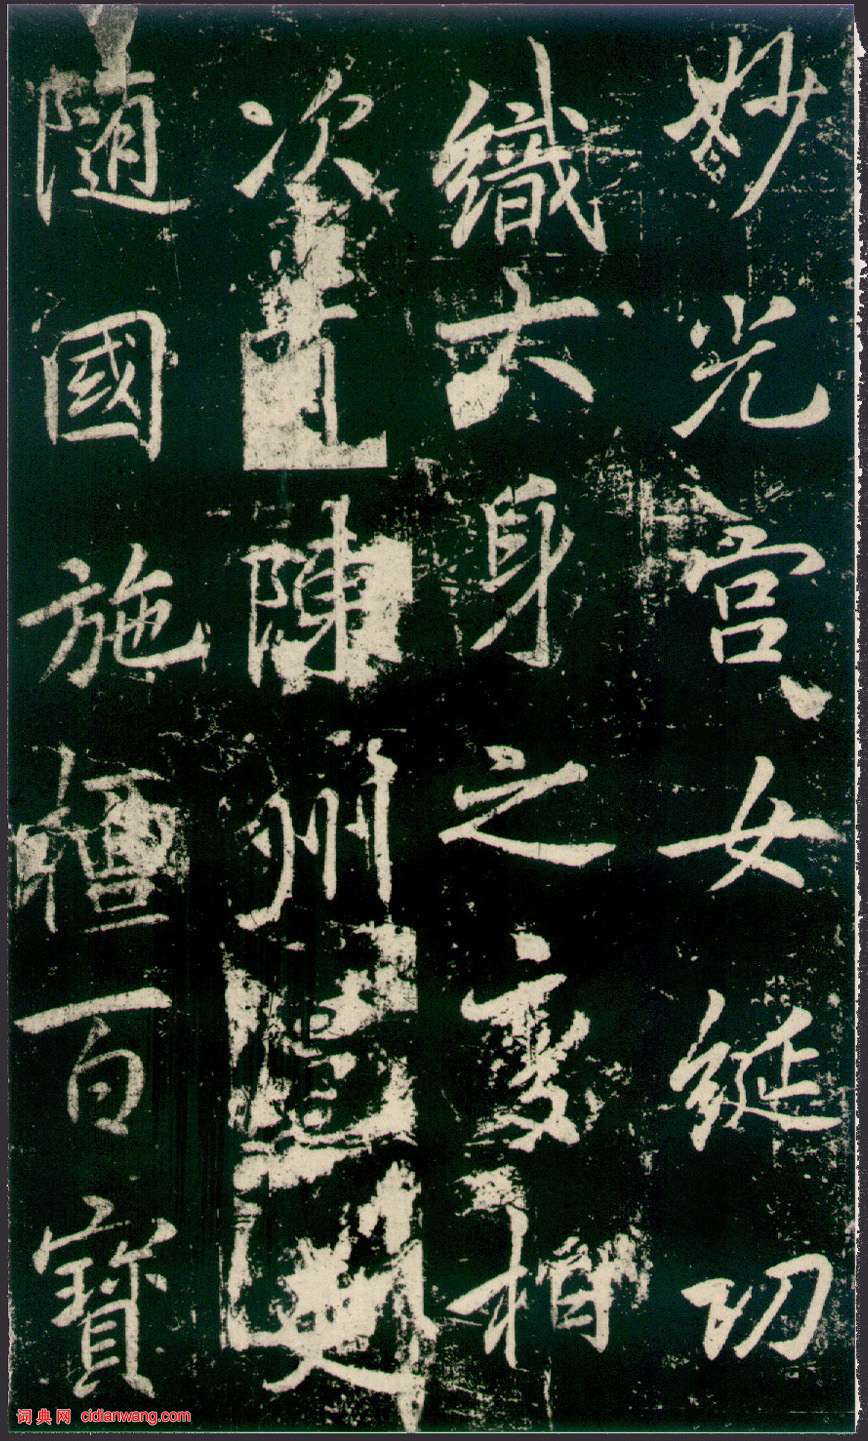 妙光宮女綖功
織大身之變相
次陳州
隨國施檀百寶
词典网 cidianwang.com